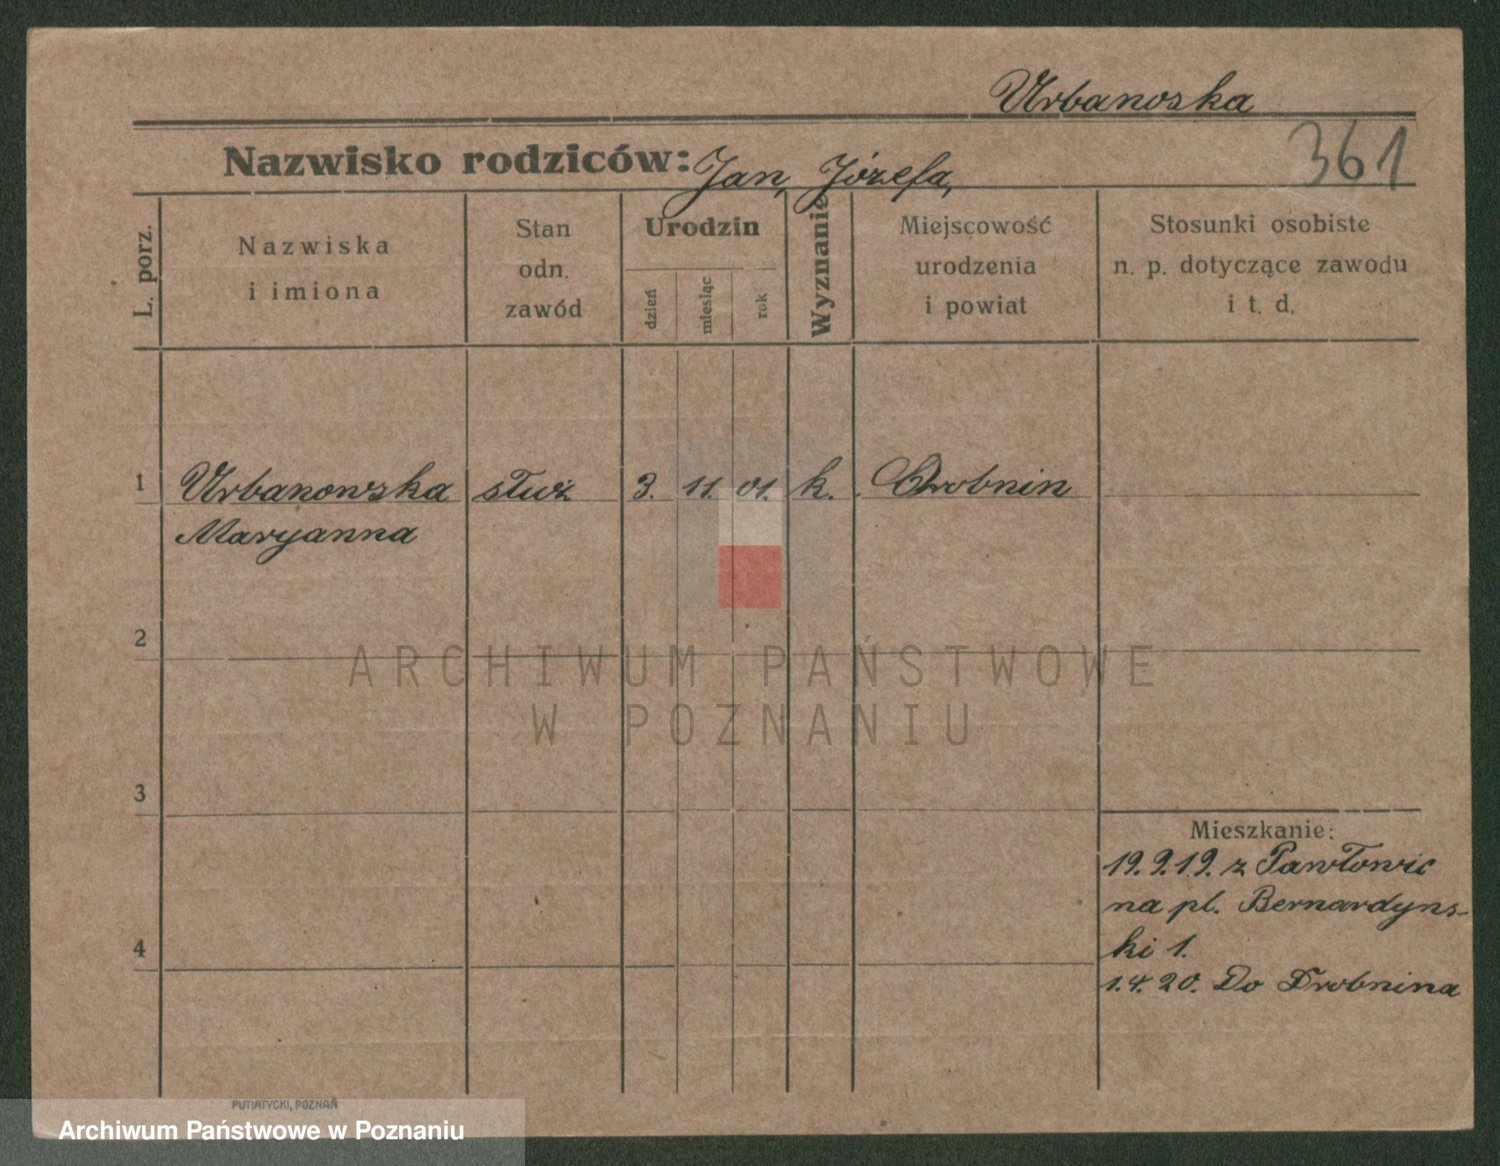 Urbanoska
361
Nazwisko rodziców: Jan, Józefa,
L. porz.
Nazwiska
i imiona
Stan
odn.
zawód
Urodzin
dzień
miesiąc
rok
Wyznanie
Miejscowość
urodzenia
i powiat
Stosunki osobiste
n. p. dotyczące zawodu
i t. d.
1 Urbanowska służ 3. 11. 01. k. Drobnin
Maryanna
2
3
4
Mieszkanie:
19.9.19. z Pawłowic
na pl. Bernardyns-
ki 1.
1.4.20. Do Drobnina
ARCHIWUM PAŃSTWOWE
W POZNANIU
PUTIATYCKI, POZNAŃ
Archiwum Państwowe w Poznaniu